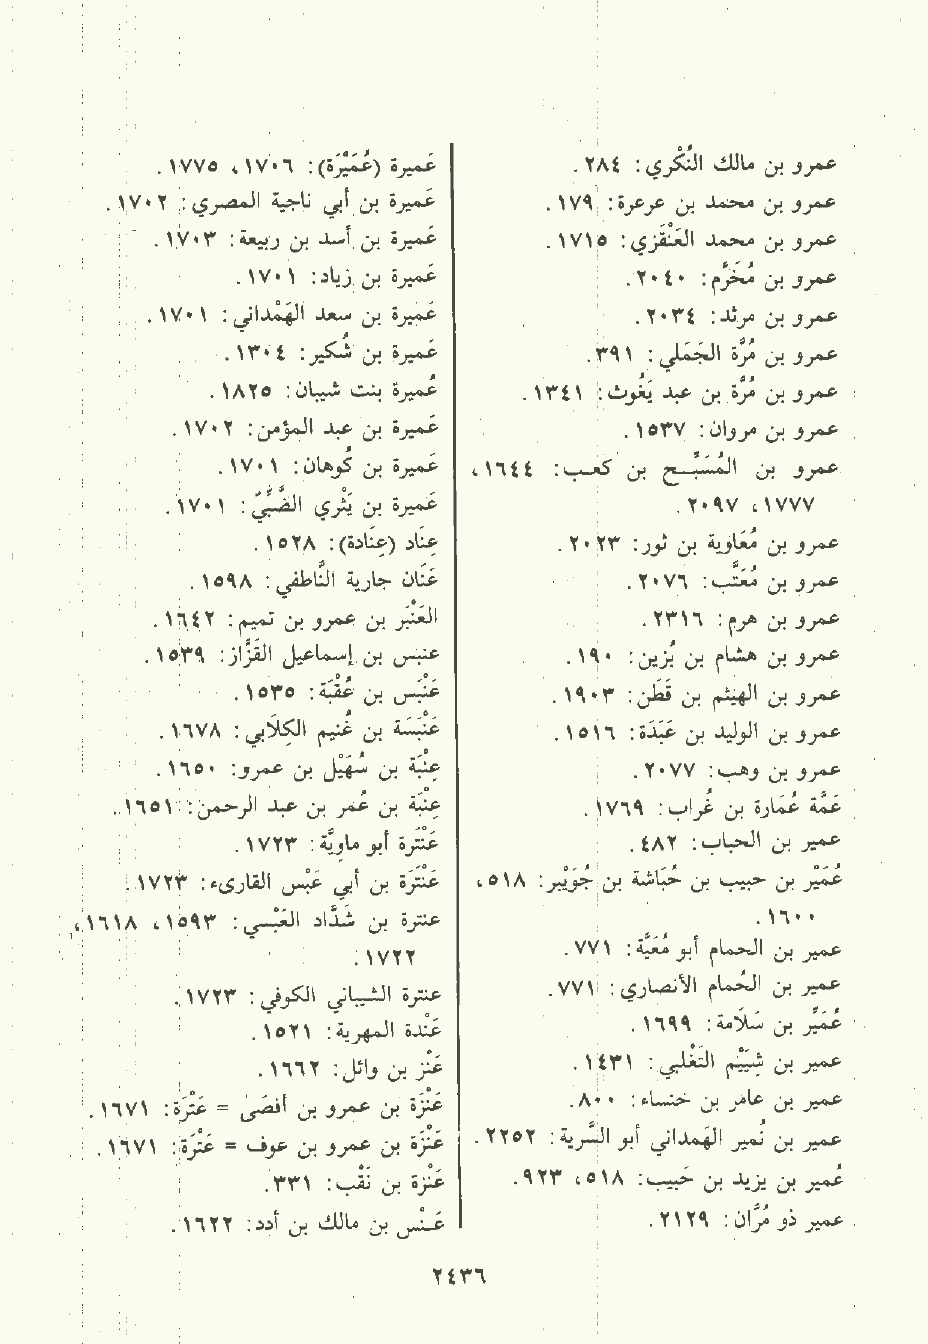 عمرو بن مالك النُكْري: ٢٨٤.
عمرو بن محمد بن عرعرة: ١٧٩.
عمرو بن محمد العَنْقَزي: ١٧١٥.
عمرو بن مُخَرَّم: ٢٠٤٠.
عمرو بن مرثد: ٢٠٣٤.
عمرو بن مُرَّة الجَمَلي: ٣٩١.
عمرو بن مُرَّة بن عبد يَغُوث: ١٣٤١.
عمرو بن مروان: ١٥٣٧.
عمرو بن المُسَبِّـح بن كعـب: ١٦٤٤،
١٧٧٧، ٢٠٩٧.
عمرو بن مُعَاوية بن ثور: ٢٠٢٣.
عمرو بن مُعَتَّب: ٢٠٧٦.
عمرو بن هرم: ٢٣١٦.
عمرو بن هشام بن بُزين: ١٩٠.
عمرو بن الهيثم بن قَطَن: ١٩٠٣.
عمرو بن الوليد بن عَبَدَة: ١٥١٦.
عمرو بن وهب: ٢٠٧٧.
عَمَّة عُمَارة بن غُراب: ١٧٦٩.
عمير بن الحباب: ٤٨٢.
عُمَيْر بن حبيب بن حُبَاشة بن جُوَيْبر: ٥١٨،
١٦٠٠.
عمير بن الحمام أبو مُعَيَّة: ٧٧١.
عمير بن الحُمام الأنصاري: ٧٧١.
عُمَيِّر بن سَلَامة: ١٦٩٩.
عمير بن شِيَيْم التَغْلبي: ١٤٣١.
عمير بن عامر بن خنساء: ٨٠٠.
عمير بن نُمير الهَمداني أبو السَّرية: ٢٢٥٢.
عُمير بن يزيد بن حَبيب: ٥١٨، ٩٢٣.
عمير ذو مُرَّان: ٢١٢٩.
عَميرة (عُمَيْرَة): ١٧٠٦، ١٧٧٥.
عَميرة بن أبي ناجية المصري: ١٧٠٢.
عَميرة بن أسد بن ربيعة: ١٧٠٣.
عَميرة بن زياد: ١٧٠١.
عَميرة بن سعد الهَمْداني: ١٧٠١.
عَميرة بن شُكير: ١٣٠٤.
عُميرة بنت شيبان: ١٨٢٥.
عَميرة بن عبد المؤمن: ١٧٠٢.
عَميرة بن كُوهان: ١٧٠١.
عَميرة بن يَثْربي الضَّبِّيّ: ١٧٠١.
عِنَاد (عِنَادة): ١٥٢٨.
عَنَان جارية النَّاطفي: ١٥٩٨.
العَنْبَر بن عمرو بن تميم: ١٦٤٢.
عنبس بن إسماعيل القَزَّاز: ١٥٣٩.
عَنْبَس بن عُقْبَة: ١٥٣٥.
عَنْبَسَة بن غُنيم الكِلَابي: ١٦٧٨.
عِنْبَة بن سُهَيْل بن عمرو: ١٦٥٠.
عِنْبَة بن عُمر بن عبد الرحمن: ١٦٥١.
عَنْتَرة أبو ماوِيَّة: ١٧٢٣.
عَنْتَرَة بن أبي عَبْس القارىء: ١٧٢٣.
عنترة بن شَدَّاد العَبْـسي: ١٥٩٣، ١٦١٨،
١٧٢٢.
عنترة الشيباني الكوفي: ١٧٢٣.
عَنْدة المهرية: ١٥٢١.
عَنْز بن وائل: ١٦٦٢.
عَنْزَة بن عمرو بن أفصَى = عَنْزَة: ١٦٧١.
عَنْزَة بن عمرو بن عوف = عَنْزَة: ١٦٧١.
عَنْزة بن نَقْب: ٣٣١.
عَـنْس بن مالك بن أدد: ١٦٢٢.
٢٤٣٦